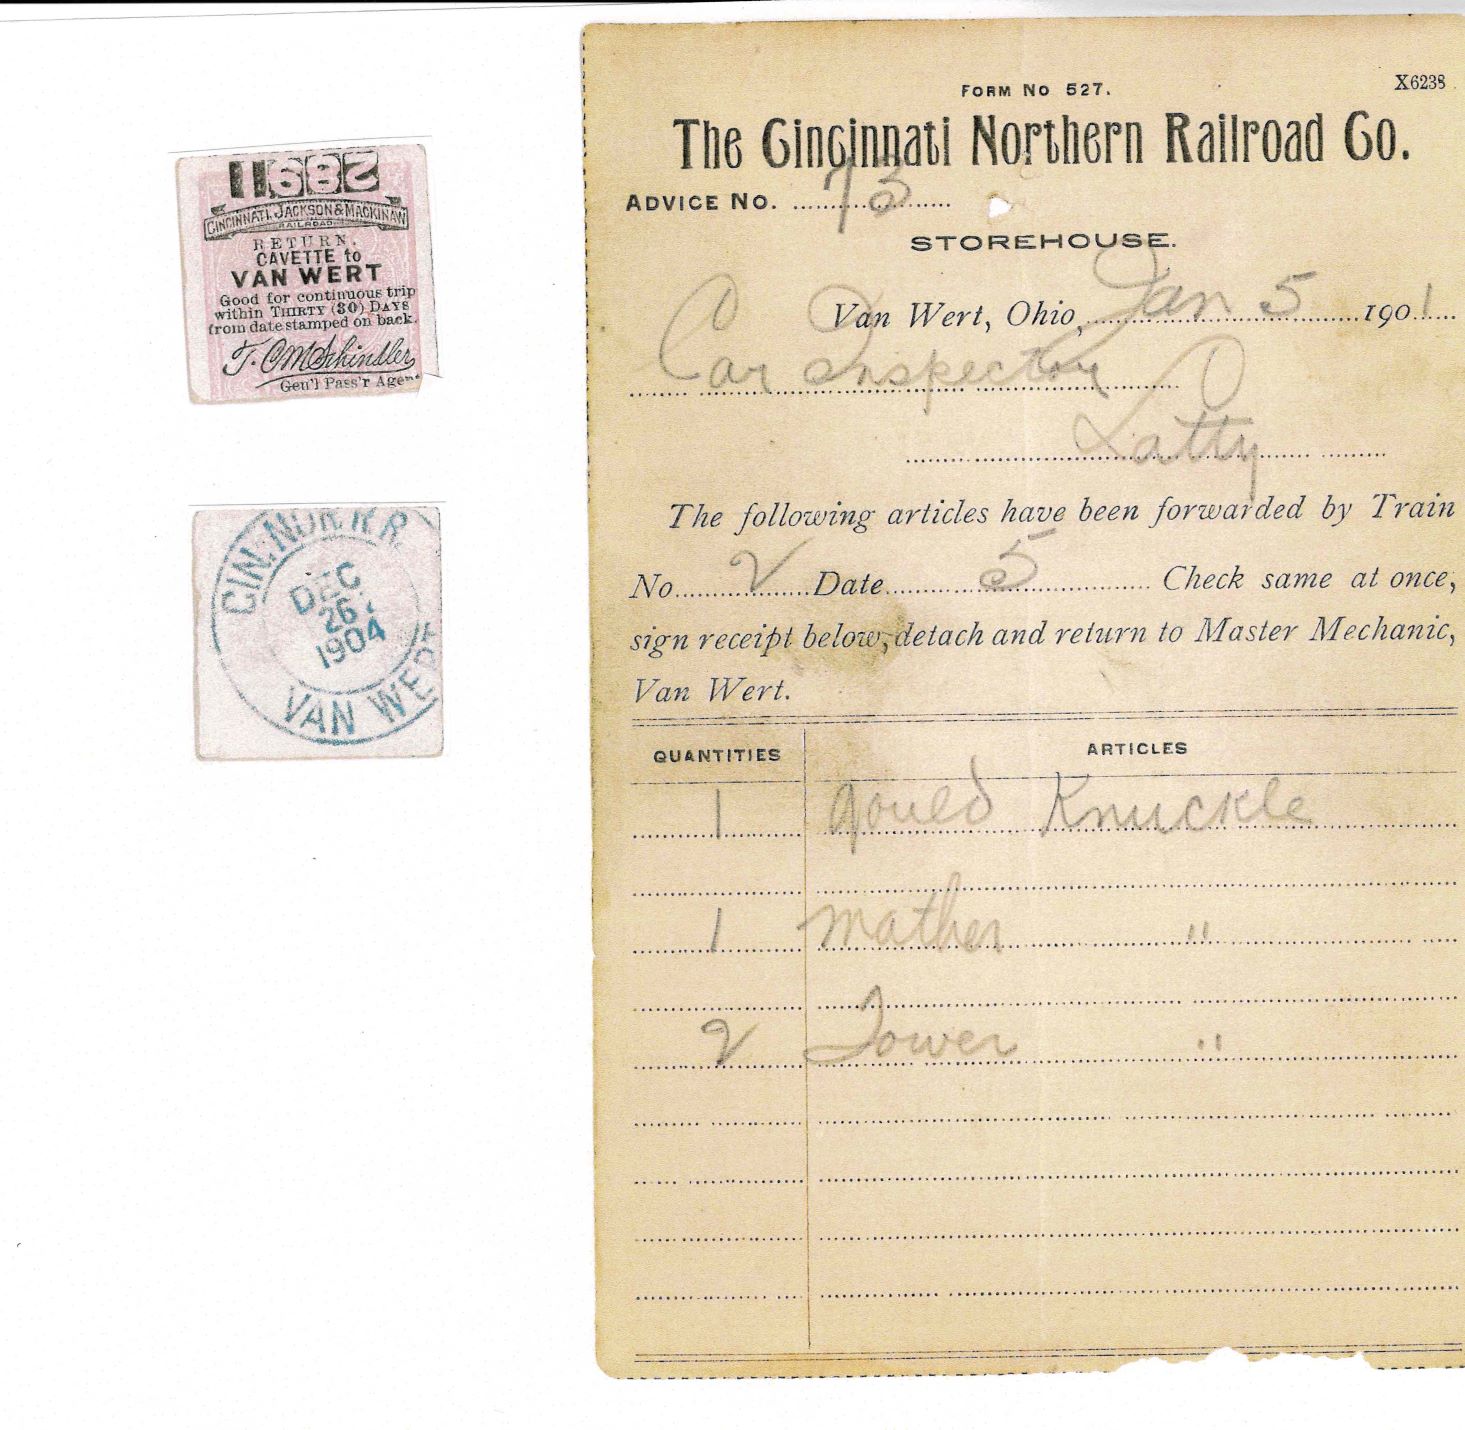 11682
CINCINNATI, JACKSON & MACKINAW
RAILROAD
RETURN.
CAVETTE to
VAN WERT
Good for continuous trip
within THIRTY (30) DAYS
from date stamped on back.
Gen'l Pass'r Agent
CIN. NOR R.R.
DEC
26
1904
VAN WERT
FORM NO 527.
X6238
The Cincinnati Northern Railroad Co.
ADVICE NO. 73
STOREHOUSE.
Van Wert, Ohio, Jan 5 1901
Car Inspector
Latty
The following articles have been forwarded by Train
No. 2 Date 5 Check same at once,
sign receipt below, detach and return to Master Mechanic,
Van Wert.
QUANTITIES ARTICLES
1 Gould Knuckle
1 Mather "
2 Tower "